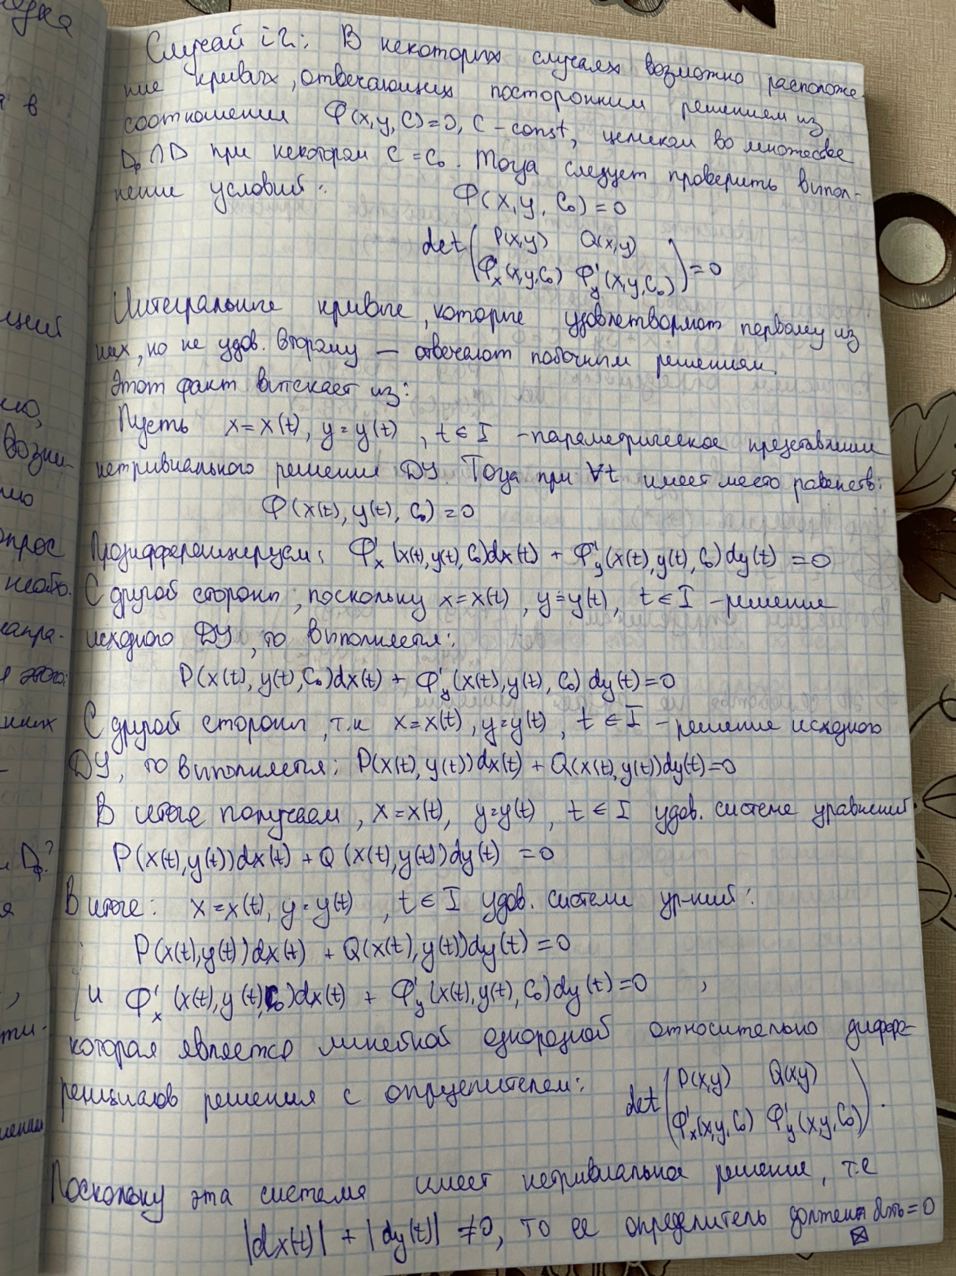 Случай i2: В некоторых случаях возможно расположе-
ние кривых, отвечающих посторонним решением из
соотношения Φ(x,y,C)=0, C-const, целиком во множестве
∩D при некотором C=C₀. Тогда следует проверить выпол-
нение условий:
Φ(x,y,C₀)=0
det(P(x,y) Q(x,y)
Φ'ₓ(x,y,C₀) Φ'ᵧ(x,y,C₀))=0
Интегральные кривые, которые удовлетворяют первому из
них, но не удов. второму — отвечают побочным решениям.
Этот факт вытекает из:
Пусть x=x(t), y=y(t), t∈I -параметрическое представление
нетривиального решения ДУ. Тогда при ∀t имеет место равенств:
Φ(x(t),y(t),C₀)=0
Продифференцируем: Φ'ₓ(x(t),y(t),C₀)dx(t) + Φ'ᵧ(x(t),y(t),C₀)dy(t)=0
С другой стороны, поскольку x=x(t), y=y(t), t∈I -решение
исходного ДУ, то выполняется:
P(x(t),y(t),C₀)dx(t) + Φ'ᵧ(x(t),y(t),C₀)dy(t)=0
С другой стороны, т.к x=x(t), y=y(t), t∈I -решение исходного
ДУ, то выполняется: P(x(t),y(t))dx(t)+Q(x(t),y(t))dy(t)=0
В итоге получаем, x=x(t), y=y(t), t∈I удов. системе уравнений
P(x(t),y(t))dx(t)+Q(x(t),y(t))dy(t)=0
В итоге: x=x(t), y=y(t), t∈I удов. системе ур-ний:
P(x(t),y(t))dx(t) + Q(x(t),y(t))dy(t)=0
и Φ'ₓ(x(t),y(t),C₀)dx(t) + Φ'ᵧ(x(t),y(t),C₀)dy(t)=0 ,
которая является линейной однородной относительно диффе-
ренциалов решения с определителем: det(P(x,y) Q(x,y)
Φ'ₓ(x,y,C₀) Φ'ᵧ(x,y,C₀)).
Поскольку эта система имеет нетривиальное решение, т.е
|dx(t)| + |dy(t)| ≠0, то ее определитель должен =0